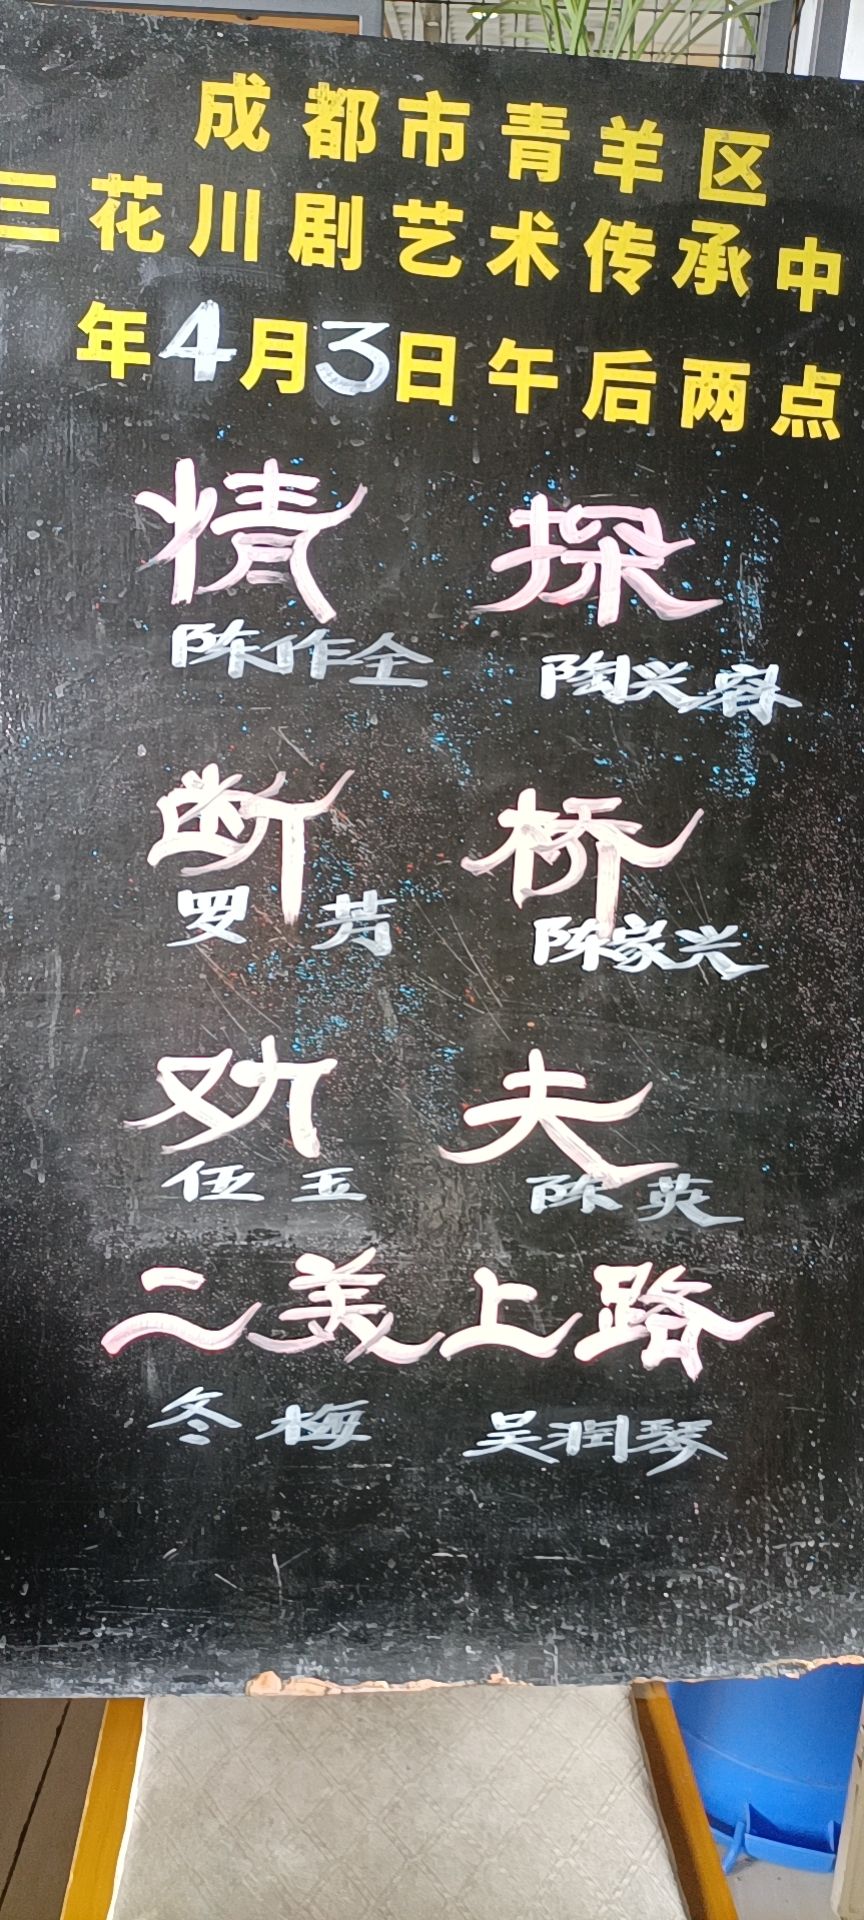 成都市青羊区
三花川剧艺术传承中
年4月3日午后两点
情探
陈作全 陶兴容
断桥
罗芳 陈家兴
劝夫
伍玉 陈英
二美上路
冬梅 吴润琴